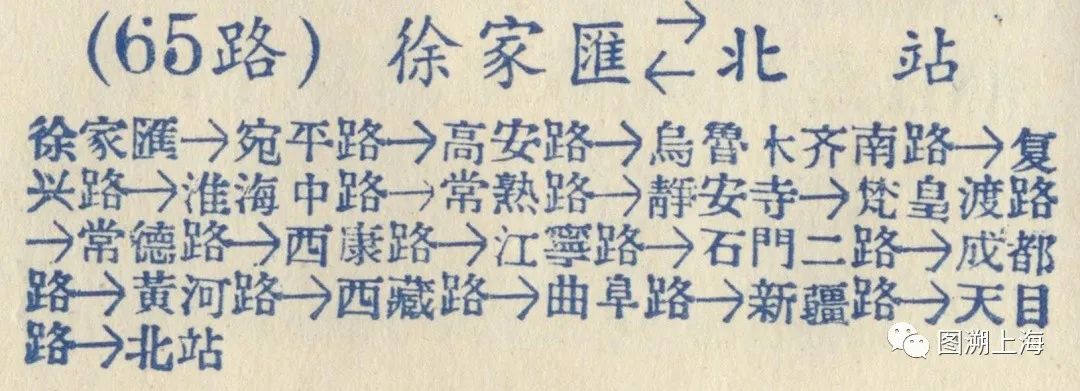 (65路) 徐家匯⇄北 站
徐家匯→宛平路→高安路→烏魯木齐南路→复
兴路→淮海中路→常熟路→靜安寺→梵皇渡路
→常德路→西康路→江寧路→石門二路→成都
路→黃河路→西藏路→曲阜路→新疆路→天目
路→北站
图溯上海